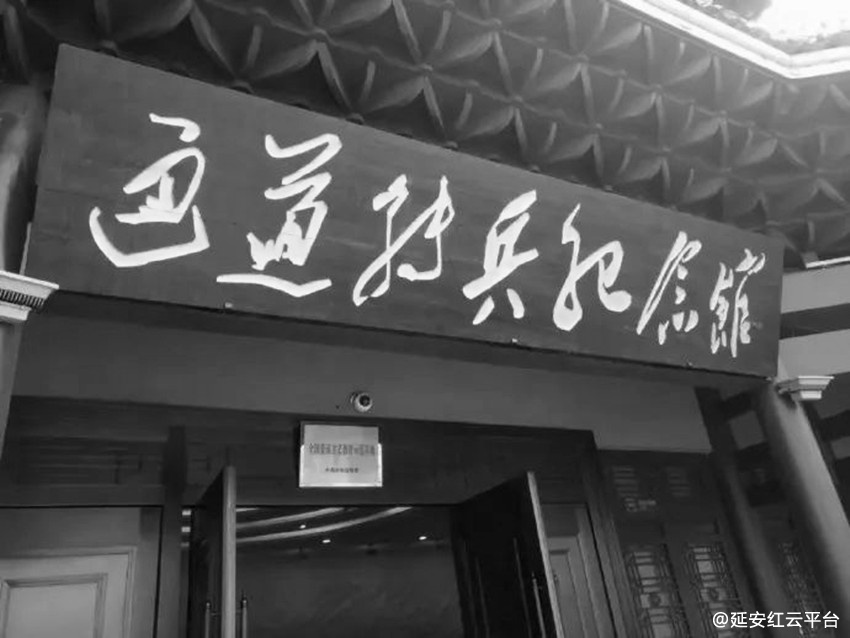 通道转兵纪念館
@延安红云平台